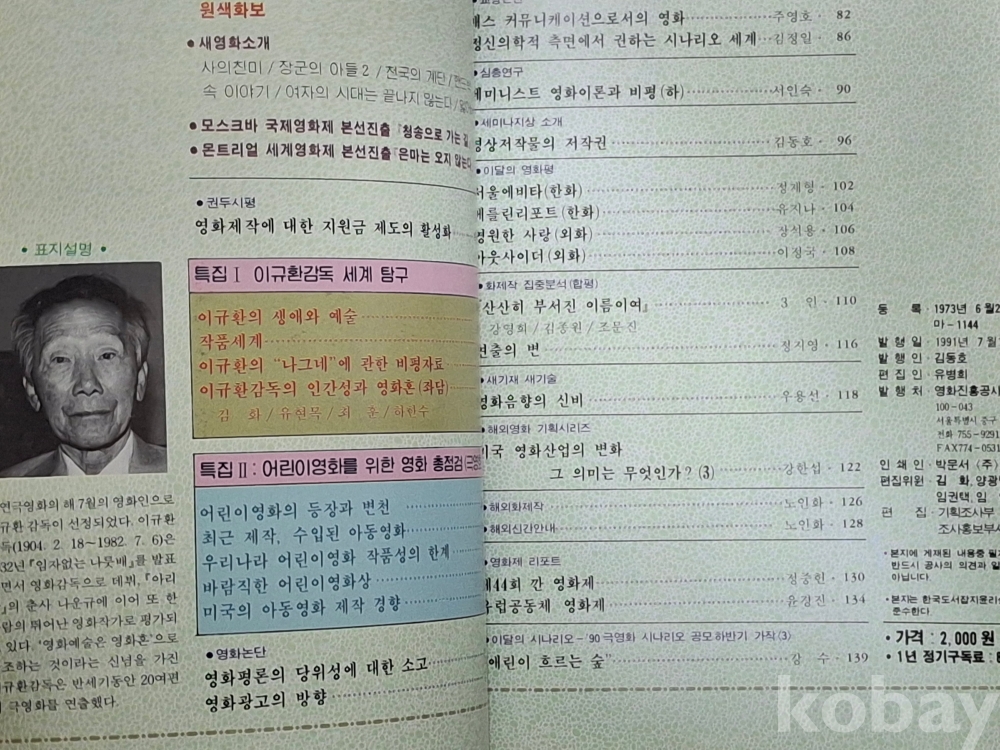 원색화보
• 새영화소개
사의찬미 / 장군의 아들 2 / 전국의 계단 /
속 이야기 / 여자의 시대는 끝나지 않는다 /
• 모스크바 국제영화제 본선진출 『청송으로 가는 길
• 몬트리얼 세계영화제 본선진출 『은마는 오지 않는다
• 권두시평
영화제작에 대한 지원금 제도의 활성화
• 표지설명 •
특집 Ⅰ 이규환감독 세계 탐구
이규환의 생애와 예술
작품세계
이규환의 "나그네"에 관한 비평자료
이규환감독의 인간성과 영화혼(좌담)
김 화 / 유현목 / 최 훈 / 하한수
특집 Ⅱ : 어린이영화를 위한 영화 총점검
어린이영화의 등장과 변천
최근 제작, 수입된 아동영화
우리나라 어린이영화 작품성의 한계
바람직한 어린이영화상
미국의 아동영화 제작 경향
• 영화논단
영화평론의 당위성에 대한 소고
영화광고의 방향
연극영화의 해 7월의 영화인으로
규환 감독이 선정되었다. 이규환
독(1904. 2. 18~1982. 7. 6)은
32년 『임자없는 나룻배』를 발표
면서 영화감독으로 데뷔, 『아리
』의 춘사 나운규에 이어 또 한
람의 뛰어난 영화작가로 평가되
있다. '영화예술은 영화혼'으로
조하는 것이라는 신념을 가진
규환감독은 반세기동안 20여편
극영화를 연출했다.
매스 커뮤니케이션으로서의 영화 주영호 · 82
정신의학적 측면에서 권하는 시나리오 세계 김정일 · 86
• 심층연구
페미니스트 영화이론과 비평(하) 서인숙 · 90
• 세미나지상 소개
영상저작물의 저작권 김동호 · 96
• 이달의 영화평
서울에비타(한화) 정재형 · 102
베를린리포트(한화) 유지나 · 104
영원한 사랑(외화) 장석용 · 106
아웃사이더(외화) 이정국 · 108
• 화제작 집중분석(합평)
『산산히 부서진 이름이여』 3 인 · 110
강영희 / 김종원 / 조문진
연출의 변 정지영 · 116
• 새기재 새기술
영화음향의 신비 우용선 · 118
• 해외영화 기획시리즈
미국 영화산업의 변화
그 의미는 무엇인가? (3) 강한섭 · 122
• 해외화제작 노인화 · 126
• 해외신간안내 노인화 · 128
• 영화제 리포트
제44회 깐 영화제 정중헌 · 130
유럽공동체 영화제 윤장진 · 134
• 이달의 시나리오 - '90 극영화 시나리오 공모하반기 가작(3)
"애린이 흐르는 숲" 강 수 · 139
등 록 · 1973년 6월2
마-1144
발행일 · 1991년 7월
발행인 · 김동호
편집인 · 유병희
발행처 · 영화진흥공사
100-043
서울특별시 중구
전화 755-9291
FAX774-0531
인쇄인 · 박문서 (주)
편집위원 · 김 화, 양광
임권택, 임
편 집 · 기획조사부
조사홍보부
• 본지에 게재된 내용중 필
반드시 공사의 의견과 일
아닙니다.
• 본지는 한국도서잡지윤리
준수한다.
• 가격 : 2,000 원
• 1년 정기구독료 :
kobay